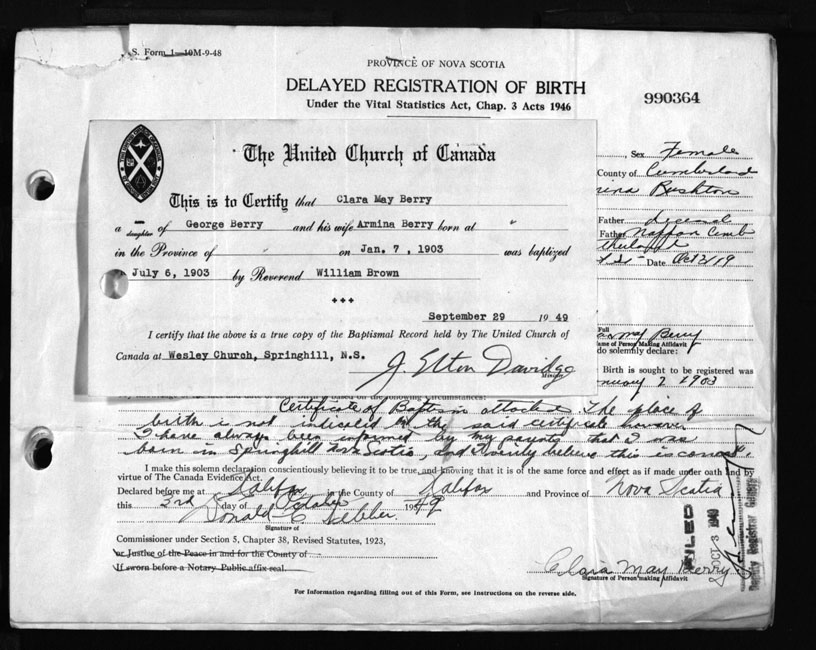 S. Form 1—10M-9-48
PROVINCE OF NOVA SCOTIA
DELAYED REGISTRATION OF BIRTH
Under the Vital Statistics Act, Chap. 3 Acts 1946
990364
The United Church of Canada
This is to Certify that Clara May Berry
a daughter of George Berry and his wife Armina Berry born at "
in the Province of " on Jan. 7, 1903 was baptized
July 6, 1903 by Reverend William Brown
+++
September 29 19 49
I certify that the above is a true copy of the Baptismal Record held by The United Church of
Canada at Wesley Church, Springhill, N.S.
J. Elton Davidge
Minister
, Sex Female
County of Cumberland
Rushton
Father
Father Nappan
Date
Full
May Berry
Name of Person Making Affidavit
do solemnly declare:
Birth is sought to be registered was
1903
Certificate of Baptism attached The place of
birth is not indicated in the said certificate however
I have always been informed by my parents that I was
born in Springhill Nova Scotia, and I verily believe this is correct.
I make this solemn declaration conscientiously believing it to be true, and knowing that it is of the same force and effect as if made under oath and by
virtue of The Canada Evidence Act.
Declared before me at Halifax in the County of Halifax and Province of Nova Scotia
this 3rd day of October 1949
Donald C
Signature of
Commissioner under Section 5, Chapter 38, Revised Statutes, 1923,
or Justice of the Peace in and for the County of
If sworn before a Notary Public affix seal.
Clara May Berry
Signature of Person making Affidavit
FILED
OCT 3 1949
Deputy Registrar General
For Information regarding filling out of this Form, see Instructions on the reverse side.